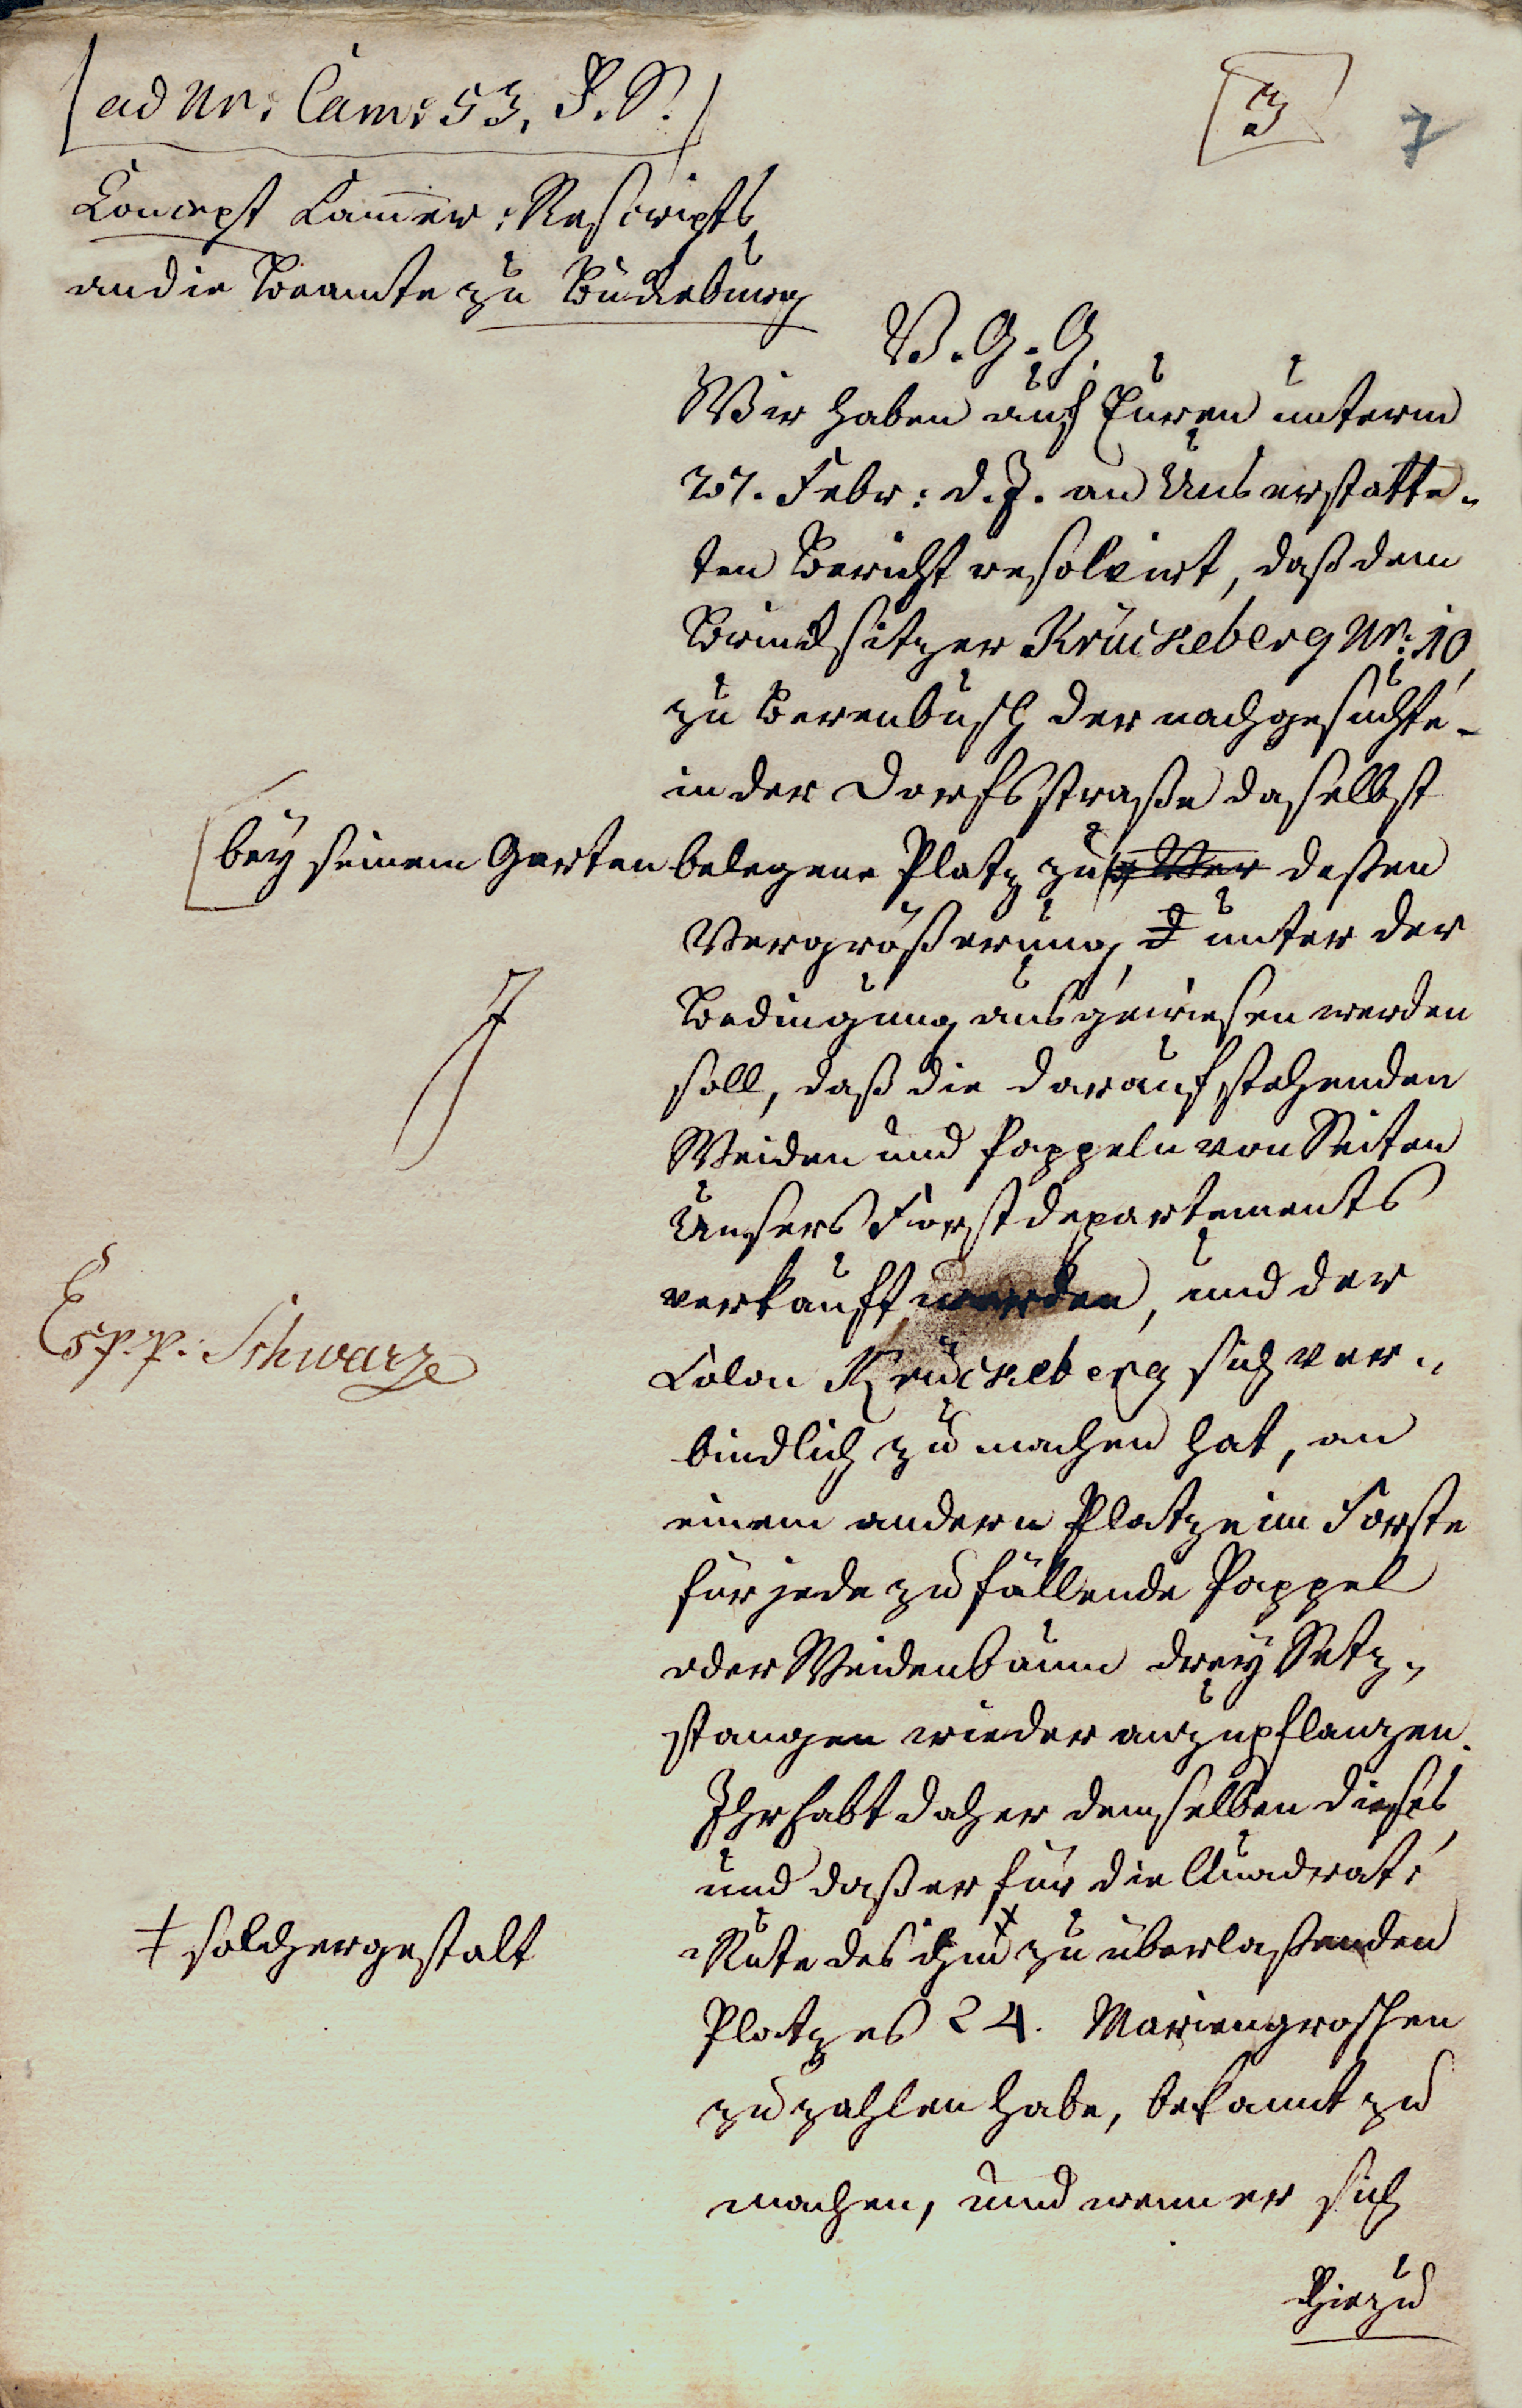 ad Nr. Cam: 53, P. S.
[3] 7
Concept Cammer: Rescripts
an die Beamte zu Bückeburg
V. G. G.
Wir haben auf Euren unterm
27. Febr: d. J. an Uns erstatte-
ten Bericht resolvirt, daß dem
Brinksitzer Krückeberg Nr: 10,
zu Berenbusch der nachgesuchte -
in der Dorfsstraße daselbst
bey seinem Garten belegene Platz zu deßen
Vergrößerung, unter der
Bedingung ausgewiesen werden
soll, daß die darauf stehenden
Weiden und Pappeln von Seiten
Unsers Forstdepartements
verkauft werden, und der
Colon Krückeberg sich ver-
Esp. p. Schwarze
bindlich zu machen hat, an
einem andern Platze im Forste
für jede zu fällende Pappel
oder Weidenbaum drey Setz-
stangen wieder anzupflanzen.
Ihr habt daher demselben dieses,
und daß er für die Quadrat:
Rute des ihm ‡ zu überlaßenden
‡ solchergestalt
Platzes 24. Mariengroschen
zu zahlen habe, bekannt zu
machen, und wenn er sich
hiezu